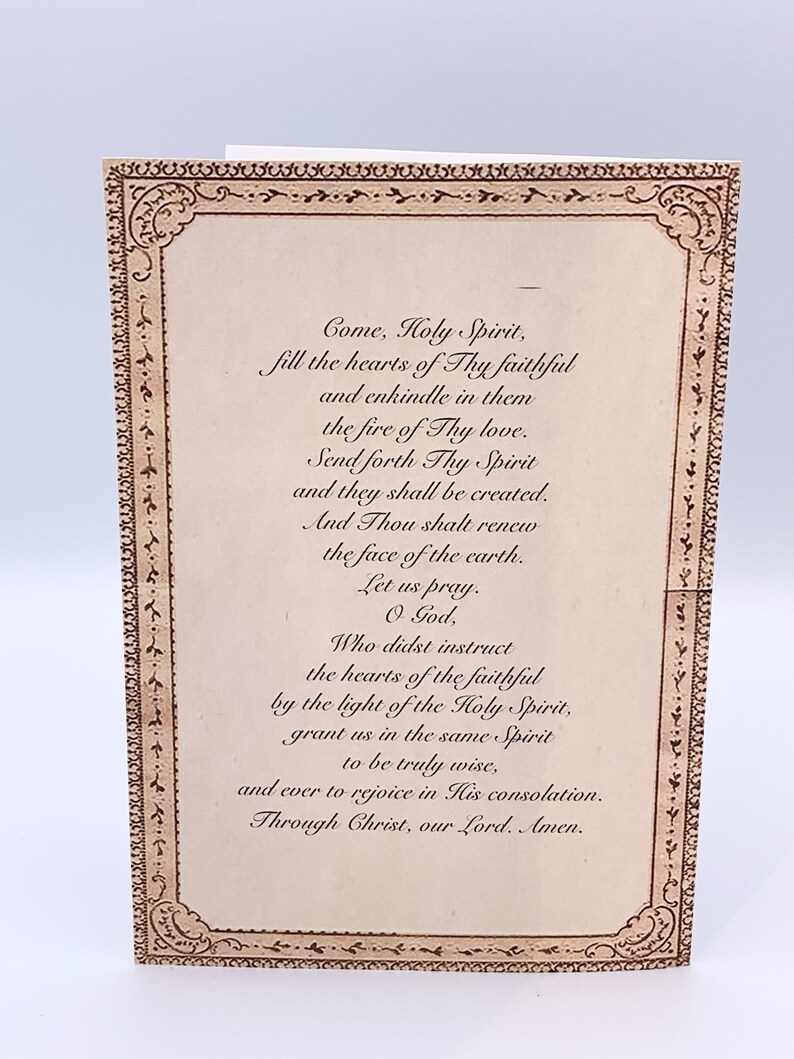 Come, Holy Spirit,
fill the hearts of Thy faithful
and enkindle in them
the fire of Thy love.
Send forth Thy Spirit
and they shall be created.
And Thou shalt renew
the face of the earth.
Let us pray.
O God,
Who didst instruct
the hearts of the faithful
by the light of the Holy Spirit,
grant us in the same Spirit
to be truly wise,
and ever to rejoice in His consolation.
Through Christ, our Lord. Amen.